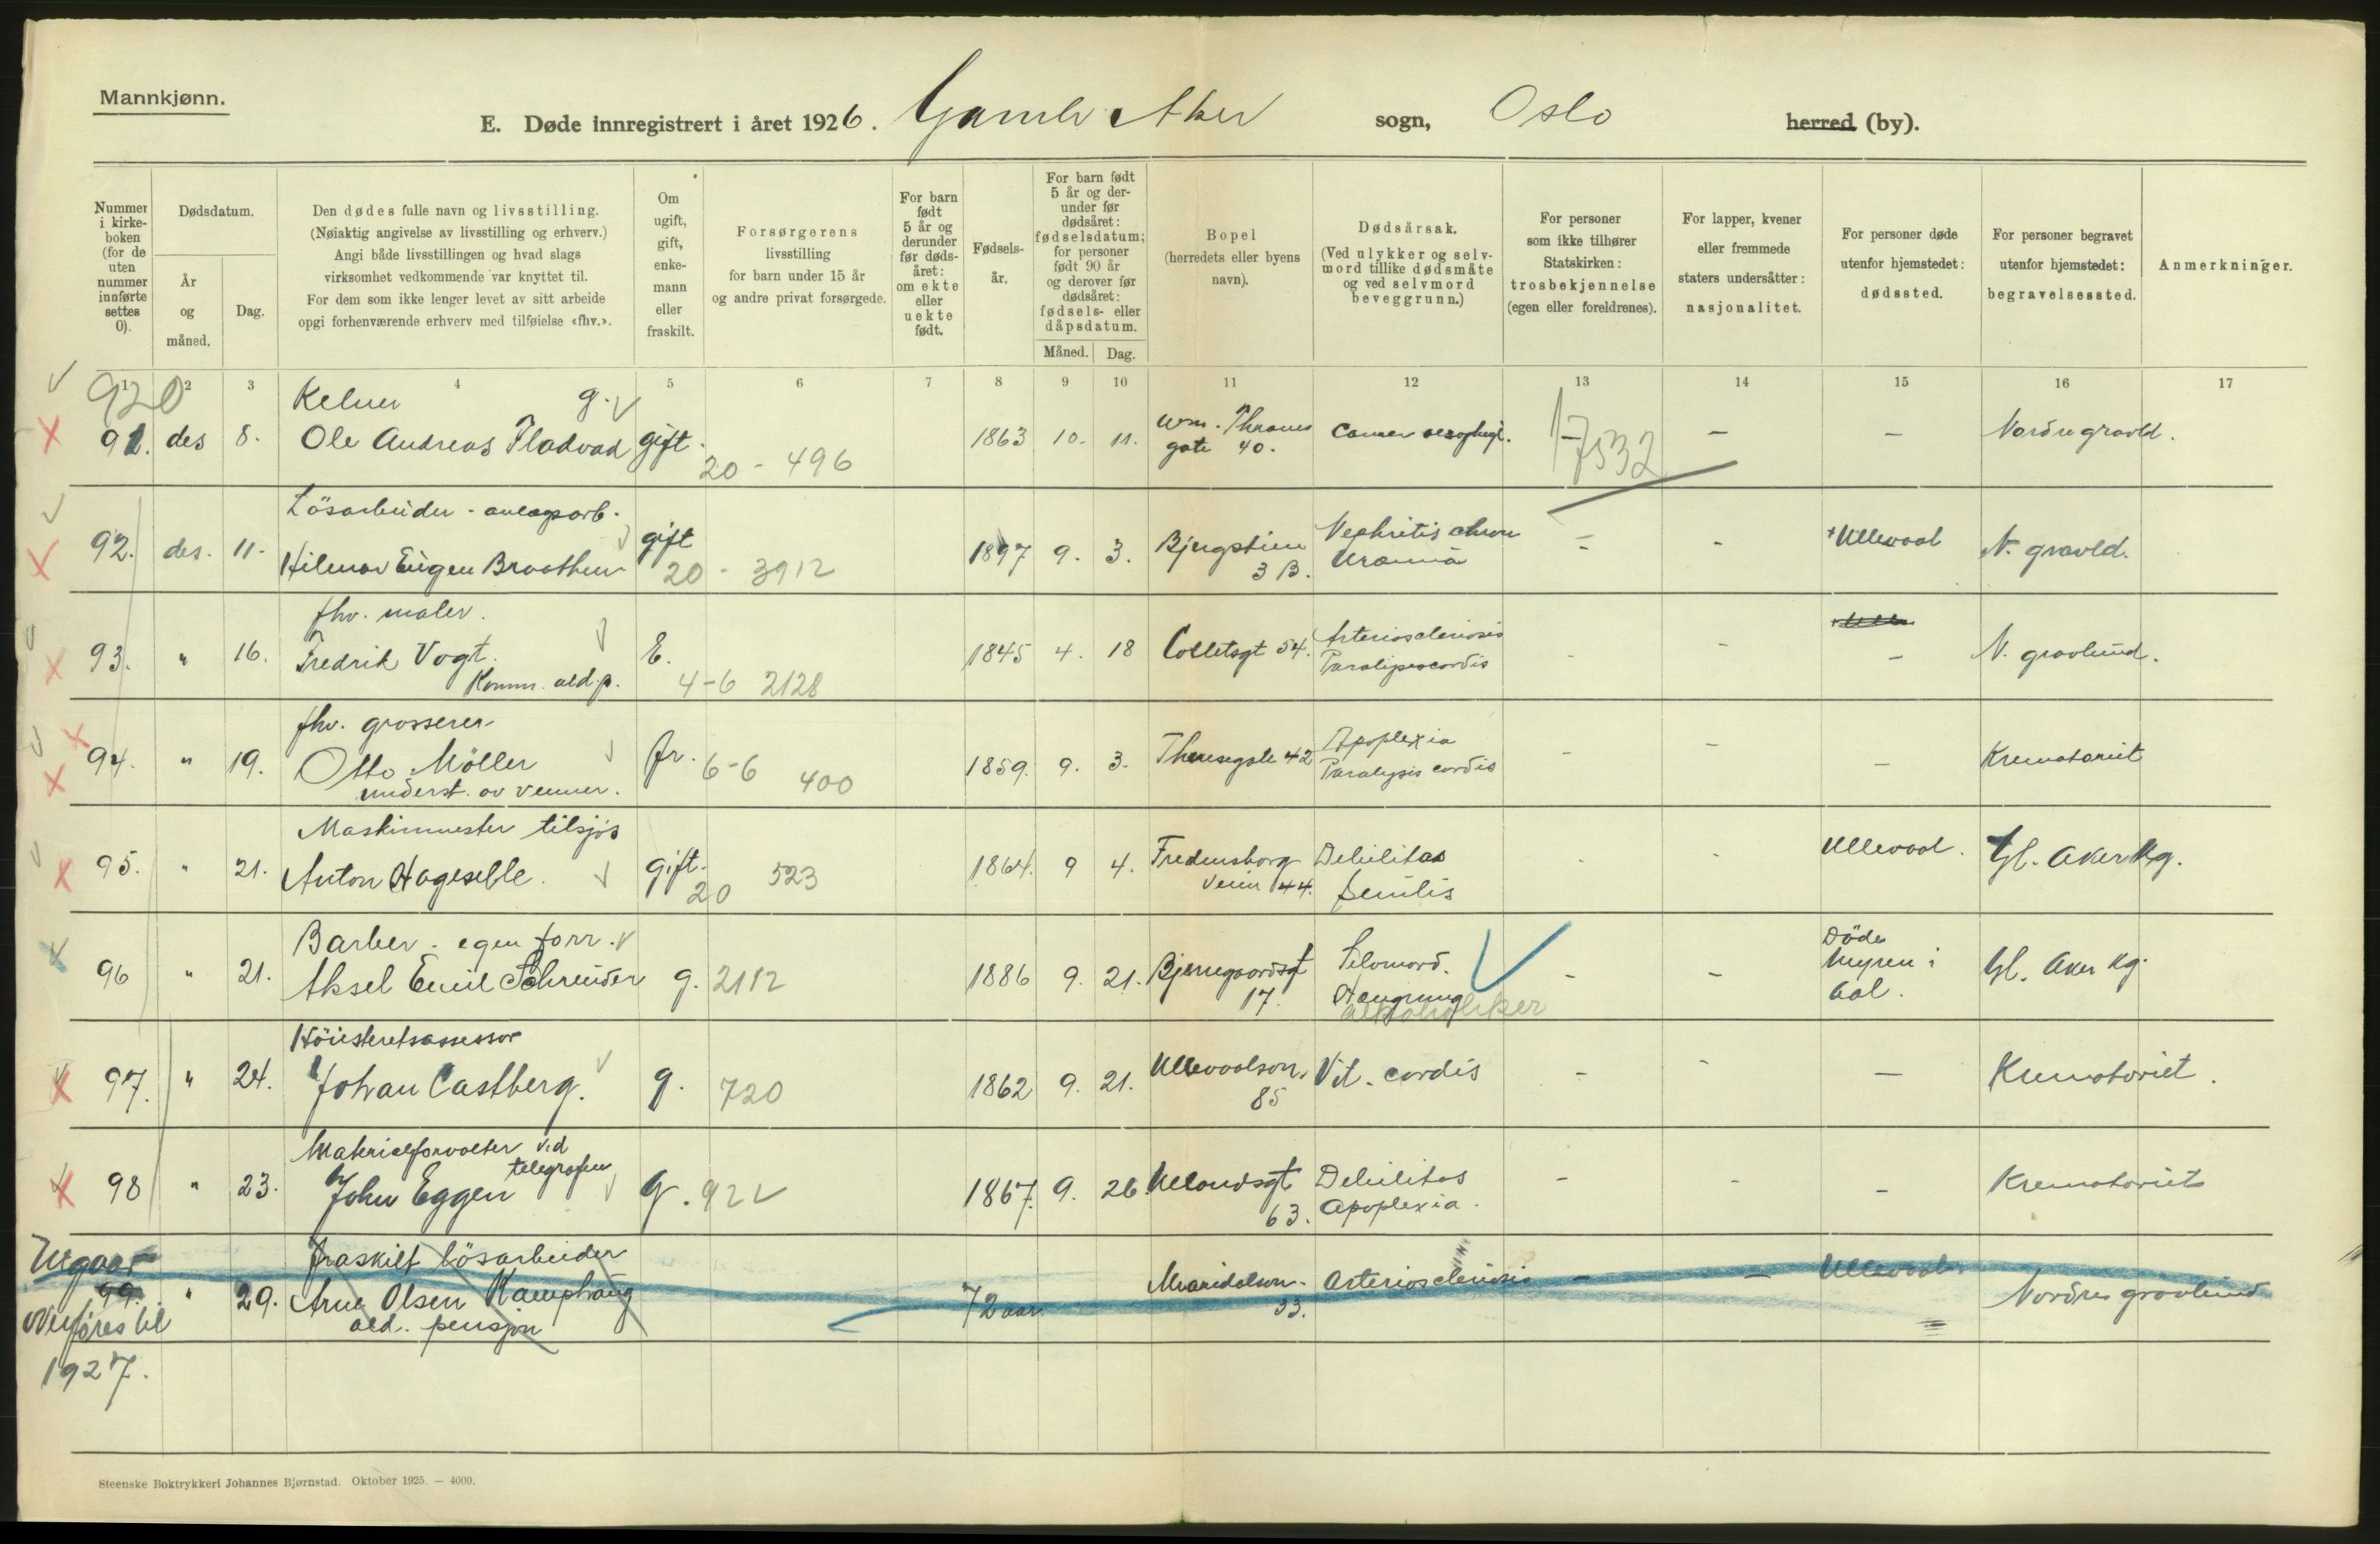 Mannkjønn.
E. Døde innregistrert i året 1926. Gamle Aker sogn, Oslo herred (by).
Nummer i kirke-boken (for de uten nummer innførte settes 0).
Dødsdatum.
År og måned.
Dag.
Den dødes fulle navn og livsstilling.
(Nøiaktig angivelse av livsstilling og erhverv.)
Angi både livsstillingen og hvad slags
virksomhet vedkommende var knyttet til.
For dem som ikke lenger levet av sitt arbeide
opgi forhenværende erhverv med tilføielse «fhv.».
Om ugift, gift, enke-mann eller fraskilt.
Forsørgerens
livsstilling
for barn under 15 år
og andre privat forsørgede.
For barn født 5 år og derunder før døds-året: om ekte eller uekte født.
Fødsels-år.
For barn født 5 år og der-under før dødsåret: fødselsdatum; for personer født 90 år og derover før dødsåret: fødsels- eller dåpsdatum.
Måned.
Dag.
Bopel
(herredets eller byens
navn).
Dødsårsak.
(Ved ulykker og selv-
mord tillike dødsmåte
og ved selvmord
beveggrunn.)
For personer
som ikke tilhører
Statskirken:
trosbekjennelse
(egen eller foreldrenes).
For lapper, kvener
eller fremmede
staters undersåtter:
nasjonalitet.
For personer døde
utenfor hjemstedet:
dødssted.
For personer begravet
utenfor hjemstedet:
begravelsessted.
Anmerkninger.
1 2 3 4 5 6 7 8 9 10 11 12 13 14 15 16 17
920
Kelner g.
91. des 8. Ole Andreas Fladvad gift. 20 - 496 1863 10. 11. Wm. Thranes gate 40. Cancer oesophagi. - 17532 - - Nordre gravld.
Lösarbeider - anlegsarb.
92. des. 11. Hilmar Eugen Braathen gift 20 - 3912 1897 9. 3. Bjergstien 3 B. Nephritis chron Uræmia - - + Ullevaal N. gravld.
fhv. maler.
93. " 16. Fredrik Vogt. E. 4-6 2128 1845 4. 18 Colletsgt 54. Arterioscleriosis Paralysis cordis - - - N. gravlund.
Komm. ald.p.
fhv. grosserer
94. " 19. Otto Möller fr. 6-6 400 1859. 9. 3. Theresegate 42 Apoplexia Paralysis cordis - - - Krematoriet
underst. av venner.
Maskinmester tilsjøs
95. " 21. Anton Hageselle. gift. 20 523 1864. 9 4. Fredensborg veien 44. Debilitas senilis - - Ullevaal. Gl. Aker Kg.
Barber. egen forr.
96 " 21. Aksel Emil Schreuder g. 2112 1886 9. 21. Bjerregaardsgt 17. Selvmord. Hængning alkoholiker - - Döde Myren i Aal. Gl. Aker Kg.
Höiesteretsassessor
97. " 24. Johan Castberg. g. 720 1862 9. 21. Ullevaalsvn. 85 Vit. cordis - - - Krematoriet.
Materialforvalter ved telegrafen
98 " 23. John Eggen g. 922 1867. 9. 26. Uelandsgt 63. Debilitas Apoplexia. - - - Krematoriet
Utgaar
fraskilt lösarbeider
99. " 29. Arne Olsen Kamphaug 72 aar. Maridalsvn. 33. Arteriosclerosis - - Ullevaal Nordre gravlund
ald. pensjon
Overföres til
1927.
Steenske Boktrykkeri Johannes Bjørnstad. Oktober 1925. — 4000.